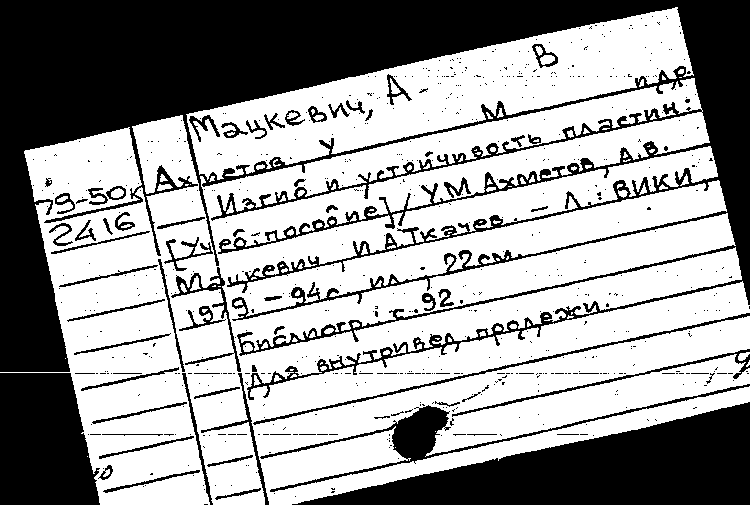 Мацкевич, А. В
79-50к
2416
Ахметов, У М и др.
Изгиб и устойчивость пластин:
[Учеб. пособие] / У.М. Ахметов, А.В.
Мацкевич, П.А. Ткачев. — Л.: ВИКИ,
1979. — 94с., ил.; 22см.
Библиогр.: с. 92.
Для внутривед. продажи.